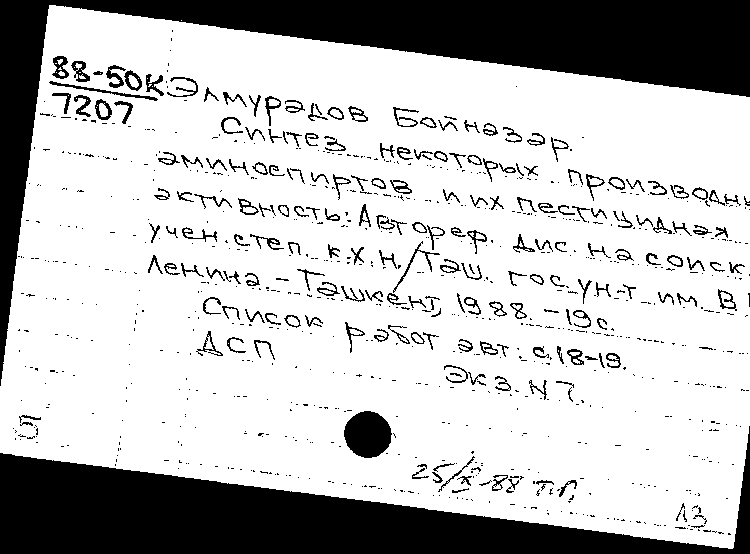 88-50К
7207
Элмурадов Бойназар.
Синтез некоторых производн
аминоспиртов и их пестицидная
активность: Автореф. дис. на соиск.
учен. степ. к.х.н. / Таш. гос. ун-т им. В
Ленина - Ташкент, 1988. - 19 с.
Список работ авт.: с. 18-19.
ДСП
Экз. N 7.
5
25/X-88 т.г.
13